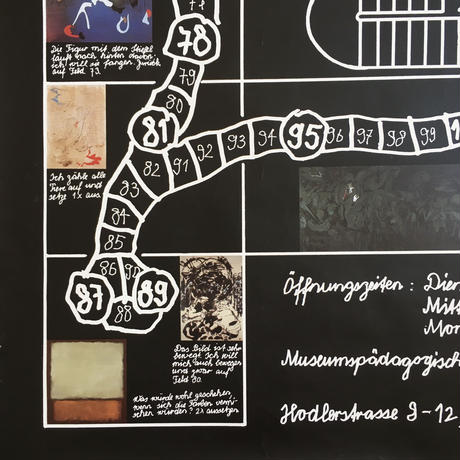 77
Die Figur mit dem Stiefel
läuft nach hinten davon.
Ich will sie fangen. Zurück
auf Feld 73.
78
79
80
81
82
91
92
93
94
95
96
97
98
99
Ich zähle alle
Tiere auf und
setze 1x aus.
83
84
85
86
90
87
88
89
Das Bild ist sehr
bewegt. Ich will
mich auch bewegen
und zwar auf
Feld 80.
Was würde wohl geschehen,
wenn sich die Farben vermi-
schen würden? 2x aussetzen
Öffnungszeiten: Dien
Mitt
Mon
Museumspädagogisch
Hodlerstrasse 8-12,